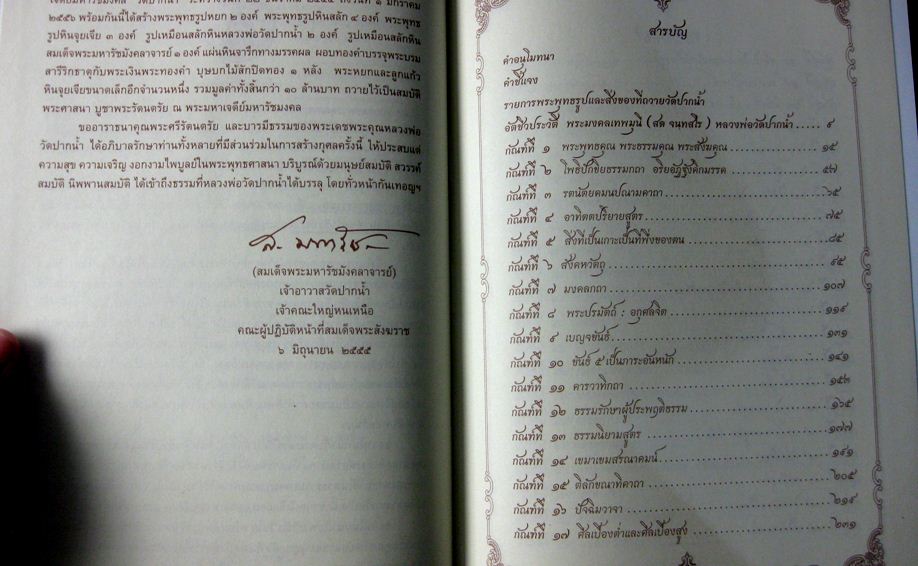 เจดีย์มหารัชมงคล วัดปากน้ำ ระหว่างวันที่ ๒๒ ธันวาคม ๒๕๕๕ ถึงวันที่ ๑ มกราคม
๒๕๕๖ พร้อมกันนี้ได้สร้างพระพุทธรูปหยก ๒ องค์ พระพุทธรูปหินสลัก ๔ องค์ พระพุทธ
รูปหินจุยเจีย ๓ องค์ รูปเหมือนสลักหินหลวงพ่อวัดปากน้ำ ๒ องค์ รูปเหมือนสลักหิน
สมเด็จพระมหารัชมังคลาจารย์ ๑ องค์ แผ่นหินจารึกทางมรรคผล ผอบทองคำบรรจุพระบรม
สารีริกธาตุกับพระเงินพระทองคำ บุษบกไม้สักปิดทอง ๑ หลัง พระหยกและลูกแก้ว
หินจุยเจียขนาดเล็กอีกจำนวนหนึ่ง รวมมูลค่าทั้งสิ้นกว่า ๑๐ ล้านบาท ถวายไว้เป็นสมบัติ
พระศาสนา บูชาพระรัตนตรัย ณ พระมหาเจดีย์มหารัชมงคล
ขออาราธนาคุณพระศรีรัตนตรัย และบารมีธรรมของพระเดชพระคุณหลวงพ่อ
วัดปากน้ำ ได้อภิบาลรักษาท่านทั้งหลายที่มีส่วนร่วมในการสร้างกุศลครั้งนี้ ให้ประสบแต่
ความสุข ความเจริญ งอกงามไพบูลย์ในพระพุทธศาสนา บริบูรณ์ด้วยมนุษย์สมบัติ สวรรค์
สมบัติ นิพพานสมบัติ ได้เข้าถึงธรรมที่หลวงพ่อวัดปากน้ำได้บรรลุ โดยทั่วหน้ากันเทอญฯ
(สมเด็จพระมหารัชมังคลาจารย์)
เจ้าอาวาสวัดปากน้ำ
เจ้าคณะใหญ่หนเหนือ
คณะผู้ปฏิบัติหน้าที่สมเด็จพระสังฆราช
๖ มิถุนายน ๒๕๕๕
สารบัญ
คำอนุโมทนา
คำชี้แจง
รายการพระพุทธรูปและสิ่งของที่ถวายวัดปากน้ำ
อัตชีวประวัติ พระมงคลเทพมุนี (สด จนฺทสโร) หลวงพ่อวัดปากน้ำ ๙
กัณฑ์ที่ ๑ พระพุทธคุณ พระธรรมคุณ พระสังฆคุณ ๑๕
กัณฑ์ที่ ๒ โพธิปักขิยธรรมกถา อริยอัฏฐังคิกมรรค ๕๗
กัณฑ์ที่ ๓ รตนัตยคมนปณามคาถา ๖๕
กัณฑ์ที่ ๔ อาทิตตปริยายสูตร ๗๕
กัณฑ์ที่ ๕ สิ่งที่เป็นเกาะเป็นที่พึ่งของตน ๘๕
กัณฑ์ที่ ๖ สังคหวัตถุ ๙๕
กัณฑ์ที่ ๗ มงคลกถา ๑๐๗
กัณฑ์ที่ ๘ พระปรมัตถ์ : อกุศลจิต ๑๑๙
กัณฑ์ที่ ๙ เบญจขันธ์ ๑๓๑
กัณฑ์ที่ ๑๐ ขันธ์ ๕ เป็นภาระอันหนัก ๑๔๑
กัณฑ์ที่ ๑๑ คารวาทิกถา ๑๕๓
กัณฑ์ที่ ๑๒ ธรรมรักษาผู้ประพฤติธรรม ๑๖๕
กัณฑ์ที่ ๑๓ ธรรมนิยามสูตร ๑๗๗
กัณฑ์ที่ ๑๔ เขมาเขมสรณาคมน์ ๑๙๑
กัณฑ์ที่ ๑๕ ติลักขณาทิคาถา ๒๐๕
กัณฑ์ที่ ๑๖ ปัจฉิมวาจา ๒๑๙
กัณฑ์ที่ ๑๗ ศีลเบื้องต่ำและศีลเบื้องสูง ๒๓๑